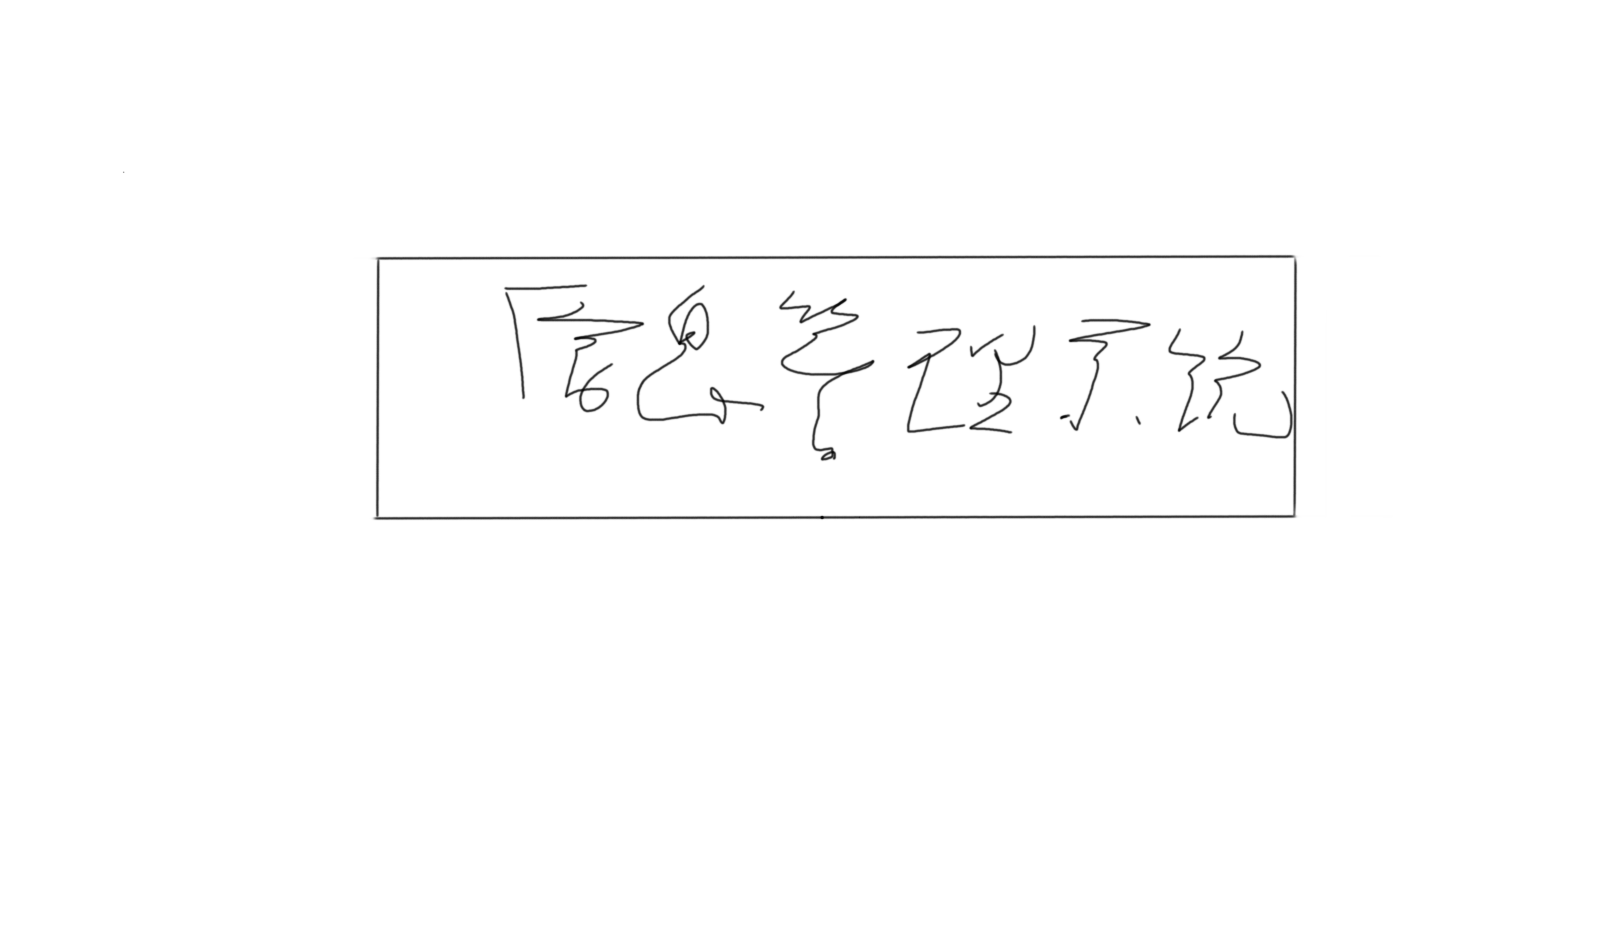 信息管理系统